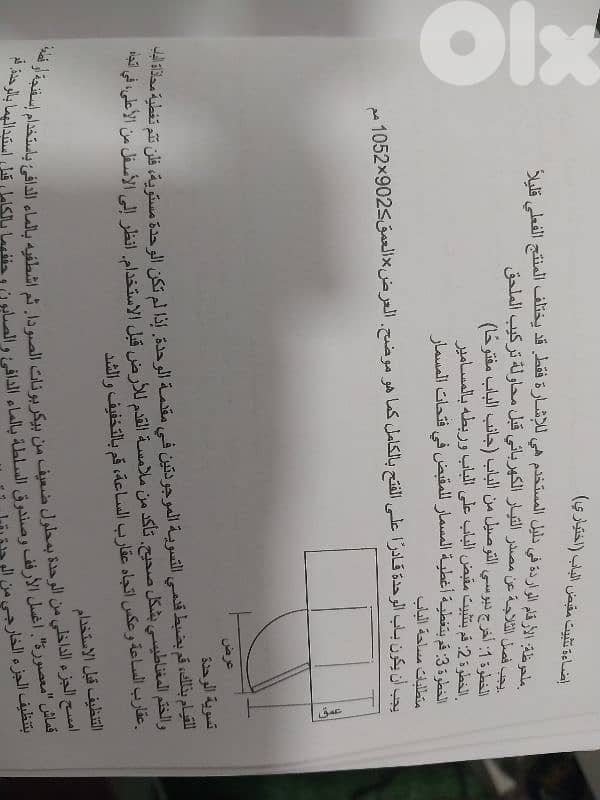 OLX
إضاءة تثبيت مقبض الباب (اختياري)
ملحوظة: الأرقام الواردة في دليل المستخدم هي للإشارة فقط. قد يختلف المنتج الفعلي قليلاً
يجب فصل الثلاجة عن مصدر التيار الكهربائي قبل محاولة تركيب الملحق.
الخطوة 1: أخرج دبوسي التوصيل من الباب (جانب الباب مفتوحًا)
الخطوة 2: قم بتثبيت مقبض الباب على الباب وربطه بالمسامير.
الخطوة 3: قم بتغطية أغطية المسمار للمقبض في فتحات المسمار
متطلبات مساحة الباب
يجب أن يكون باب الوحدة قادرًا على الفتح بالكامل كما هو موضح. العرض×العمق≥902×1052 مم
عمق
عرض
تسوية الوحدة
للقيام بذلك، قم بضبط قدمي التسوية الموجودتين في مقدمة الوحدة. إذا لم تكن الوحدة مستوية، فلن تتم تغطية محاذاة الباب
والختم المغناطيسي بشكل صحيح. تأكد من ملامسة القدم للأرض قبل الاستخدام. انظر إلى الأسفل من الأعلى، في اتجاه
عقارب الساعة وعكس اتجاه عقارب الساعة، قم بالتخفيف والشد.
التنظيف قبل الاستخدام
امسح الجزء الداخلي من الوحدة بمحلول ضعيف من بيكربونات الصودا. ثم اشطفيه بالماء الدافئ باستخدام إسفنجة أو قطعة
قماش "معصورة". اغسل الأرفف وصندوق السلطة بالماء الدافئ والصابون وجففهما بالكامل قبل استبدالهما بالوحدة. قم
بتنظيف الجزء الخارجي من الوحدة